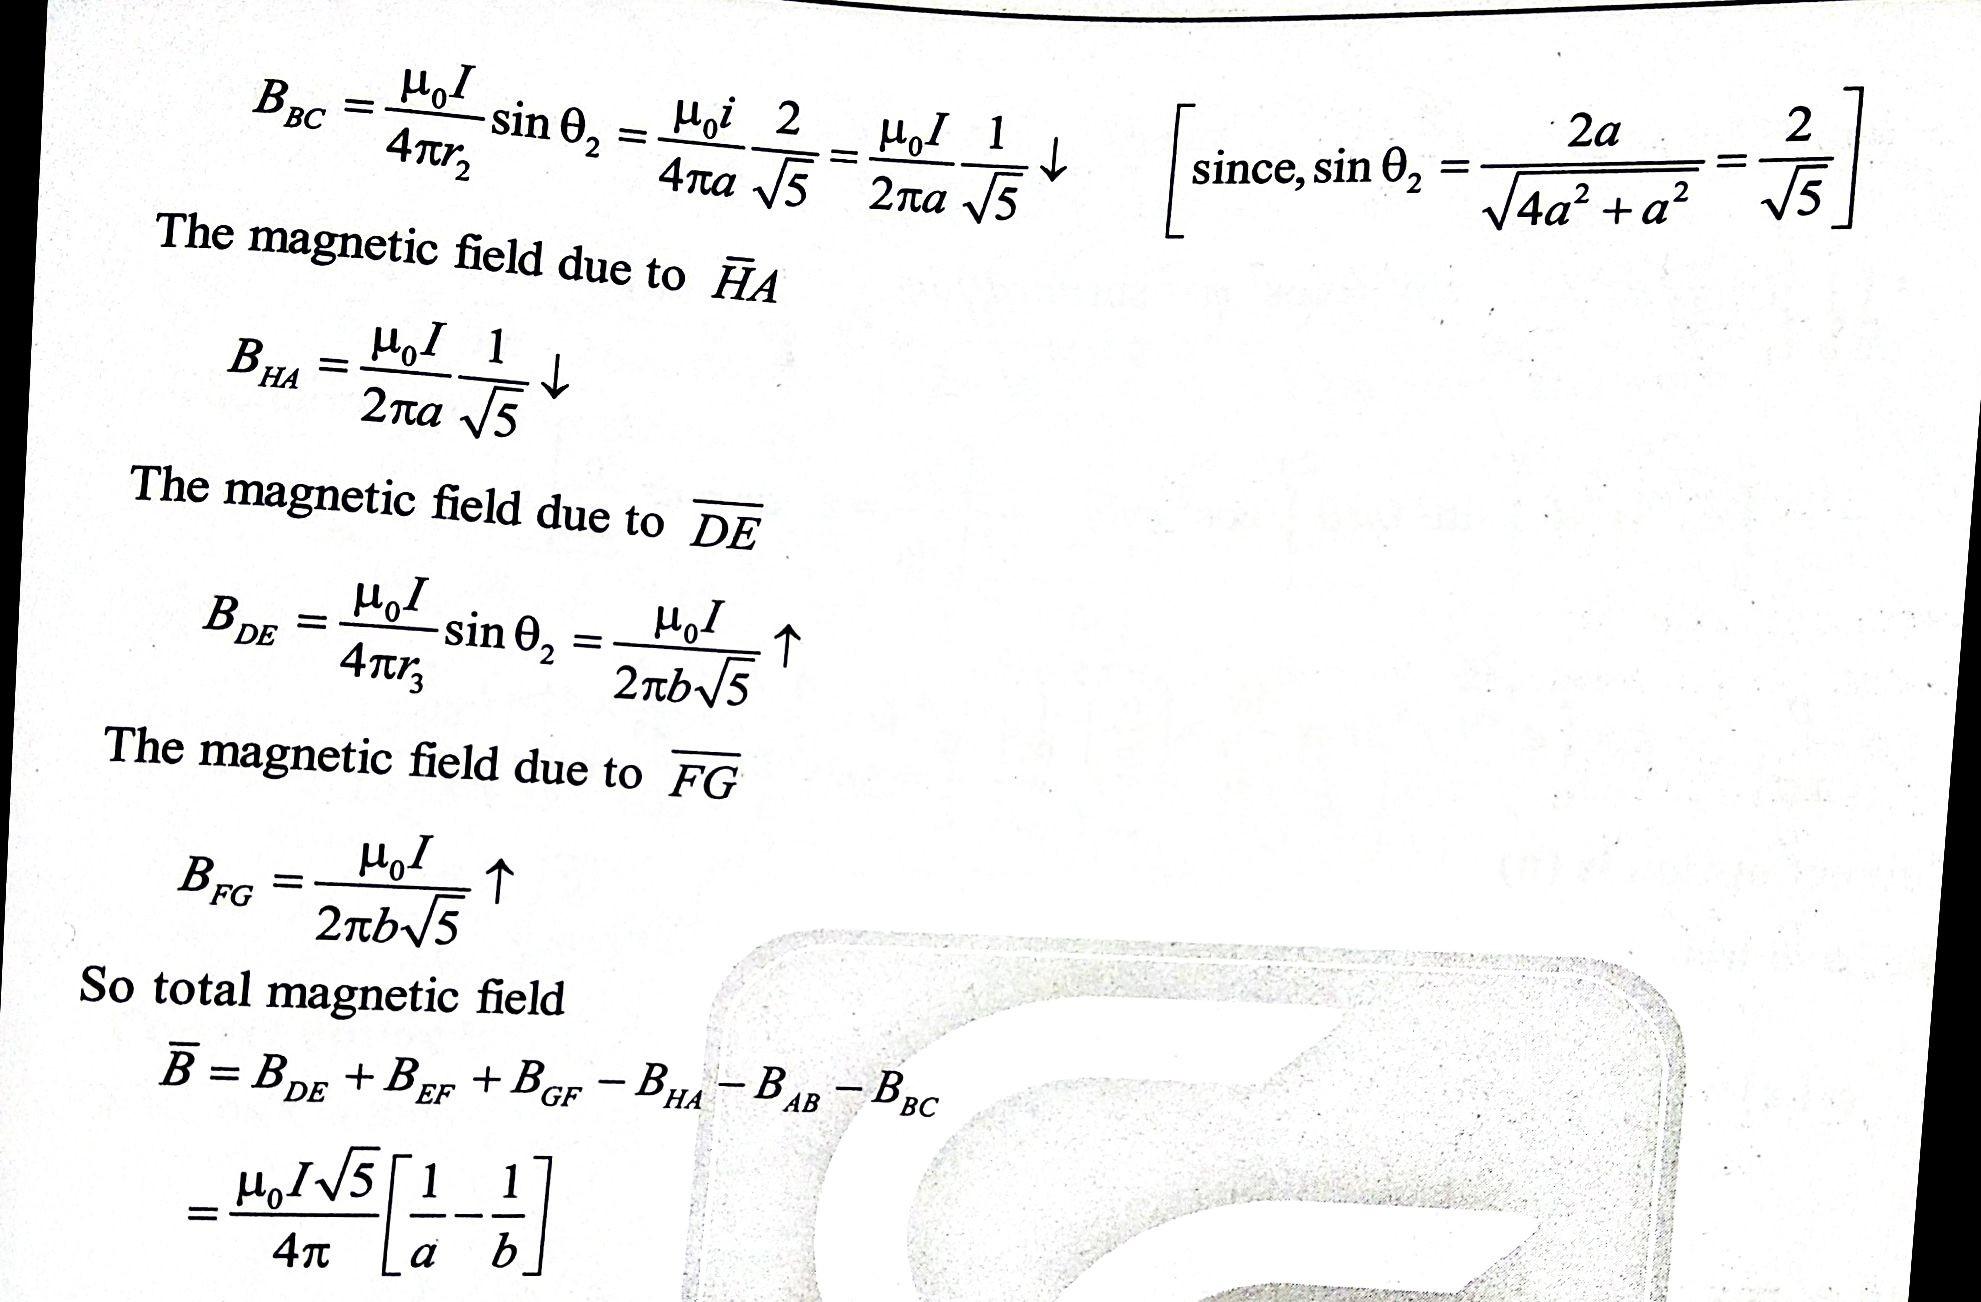 B_{BC} = \frac{μ_0 I}{4πr_2} sin θ_2 = \frac{μ_0 i}{4πa} \frac{2}{√5} = \frac{μ_0 I}{2πa} \frac{1}{√5} ↓ [since, sin θ_2 = \frac{2a}{\sqrt{4a^2 + a^2}} = \frac{2}{√5}]
The magnetic field due to \bar{H}A
B_{HA} = \frac{μ_0 I}{2πa} \frac{1}{√5} ↓
The magnetic field due to \overline{DE}
B_{DE} = \frac{μ_0 I}{4πr_3} sin θ_2 = \frac{μ_0 I}{2πb√5} ↑
The magnetic field due to \overline{FG}
B_{FG} = \frac{μ_0 I}{2πb√5} ↑
So total magnetic field
\bar{B} = B_{DE} + B_{EF} + B_{GF} − B_{HA} − B_{AB} − B_{BC}
= \frac{μ_0 I√5}{4π} [\frac{1}{a} − \frac{1}{b}]